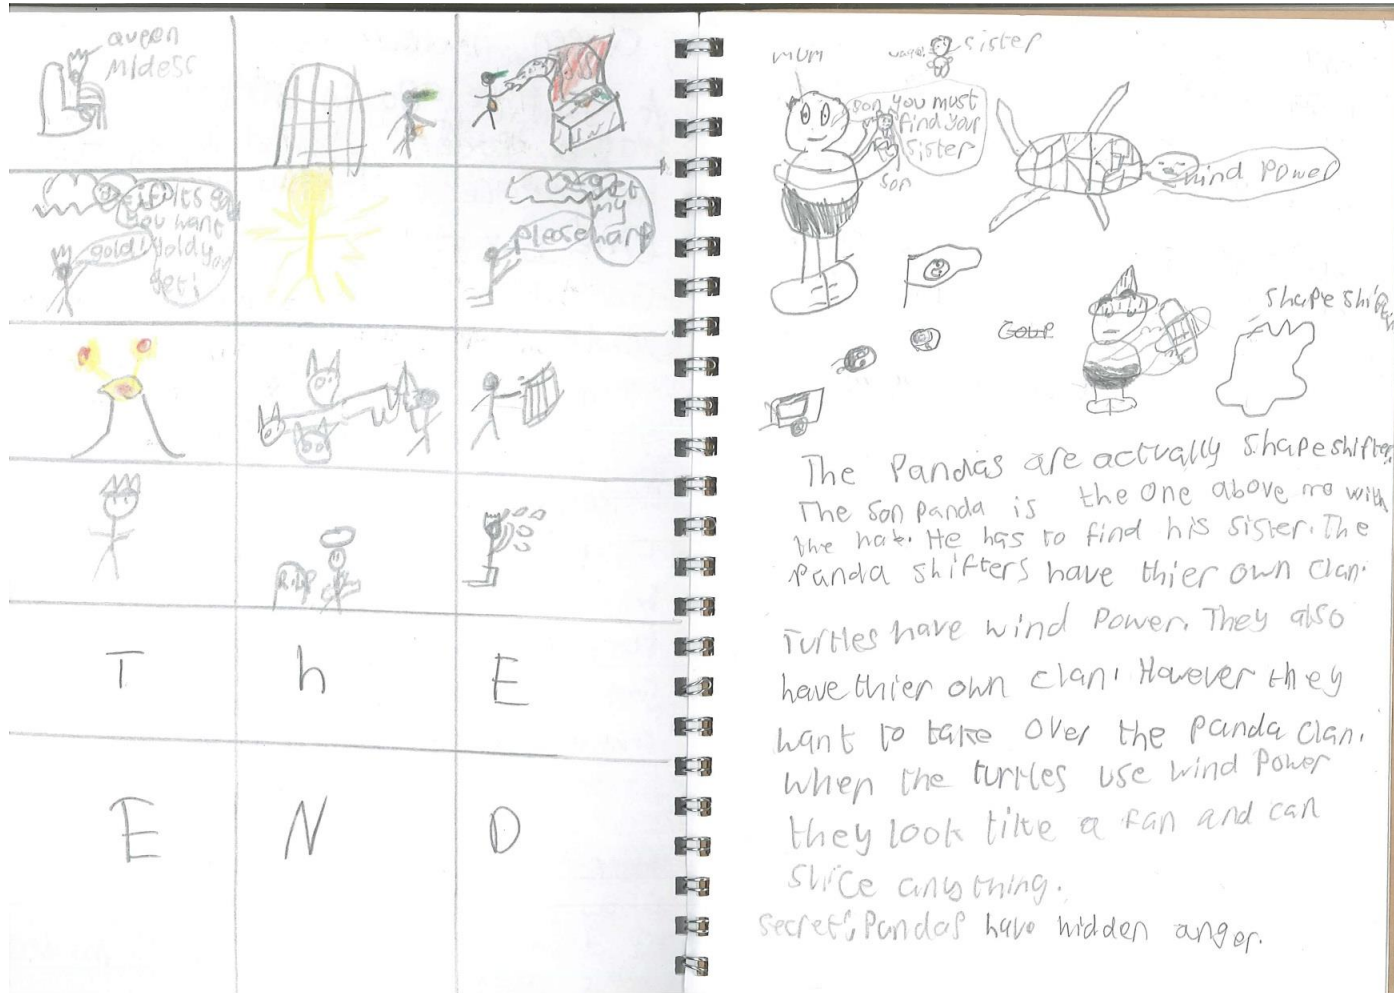 queen
midesc
if its gold
you want
goldy you
get!
gold!
get
my
harp
please
R.I.P
T h E
E N D
mum
sister
son you must
find your
sister
son
wind Power
shape shifter
The Pandas are actually shapeshifters
The son panda is the one above me with
the hat. He has to find his sister. The
Panda shifters have thier own clan.
Turtles have wind power. They also
have thier own clan. However they
want to take over the panda clan.
When the turtles use wind power
they look like a fan and can
slice anything.
secret: Pandas have hidden anger.